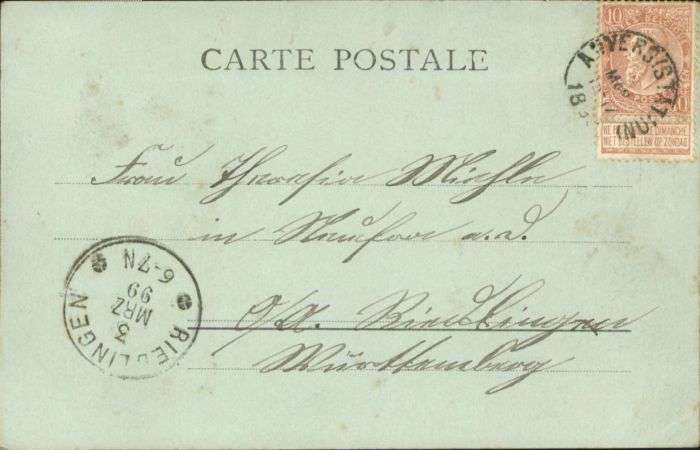 CARTE POSTALE
10
ANVERS (STATION)
NE PAS LIVRER LE DIMANCHE
NIET BESTELLEN OP ZONDAG
Frau Theresia Miehle
in Neufra a.d.
O/A. Riedlingen
Württemberg
RIEDLINGEN
3
MRZ
99
6-7N